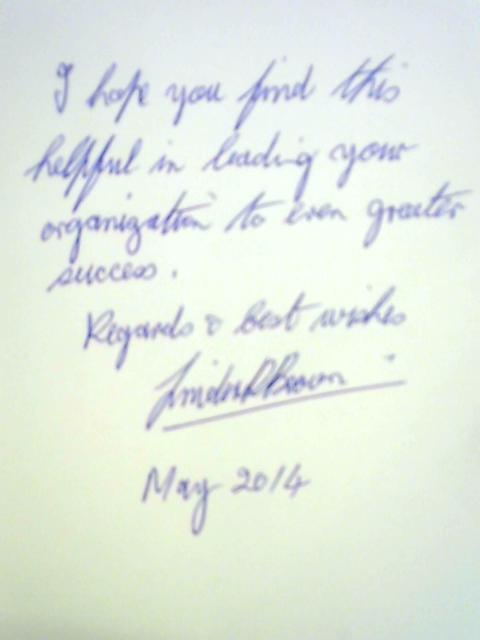 I hope you find this
helpful in leading your
organization to even greater
success.
Regards & best wishes
Linden R Brown
May 2014